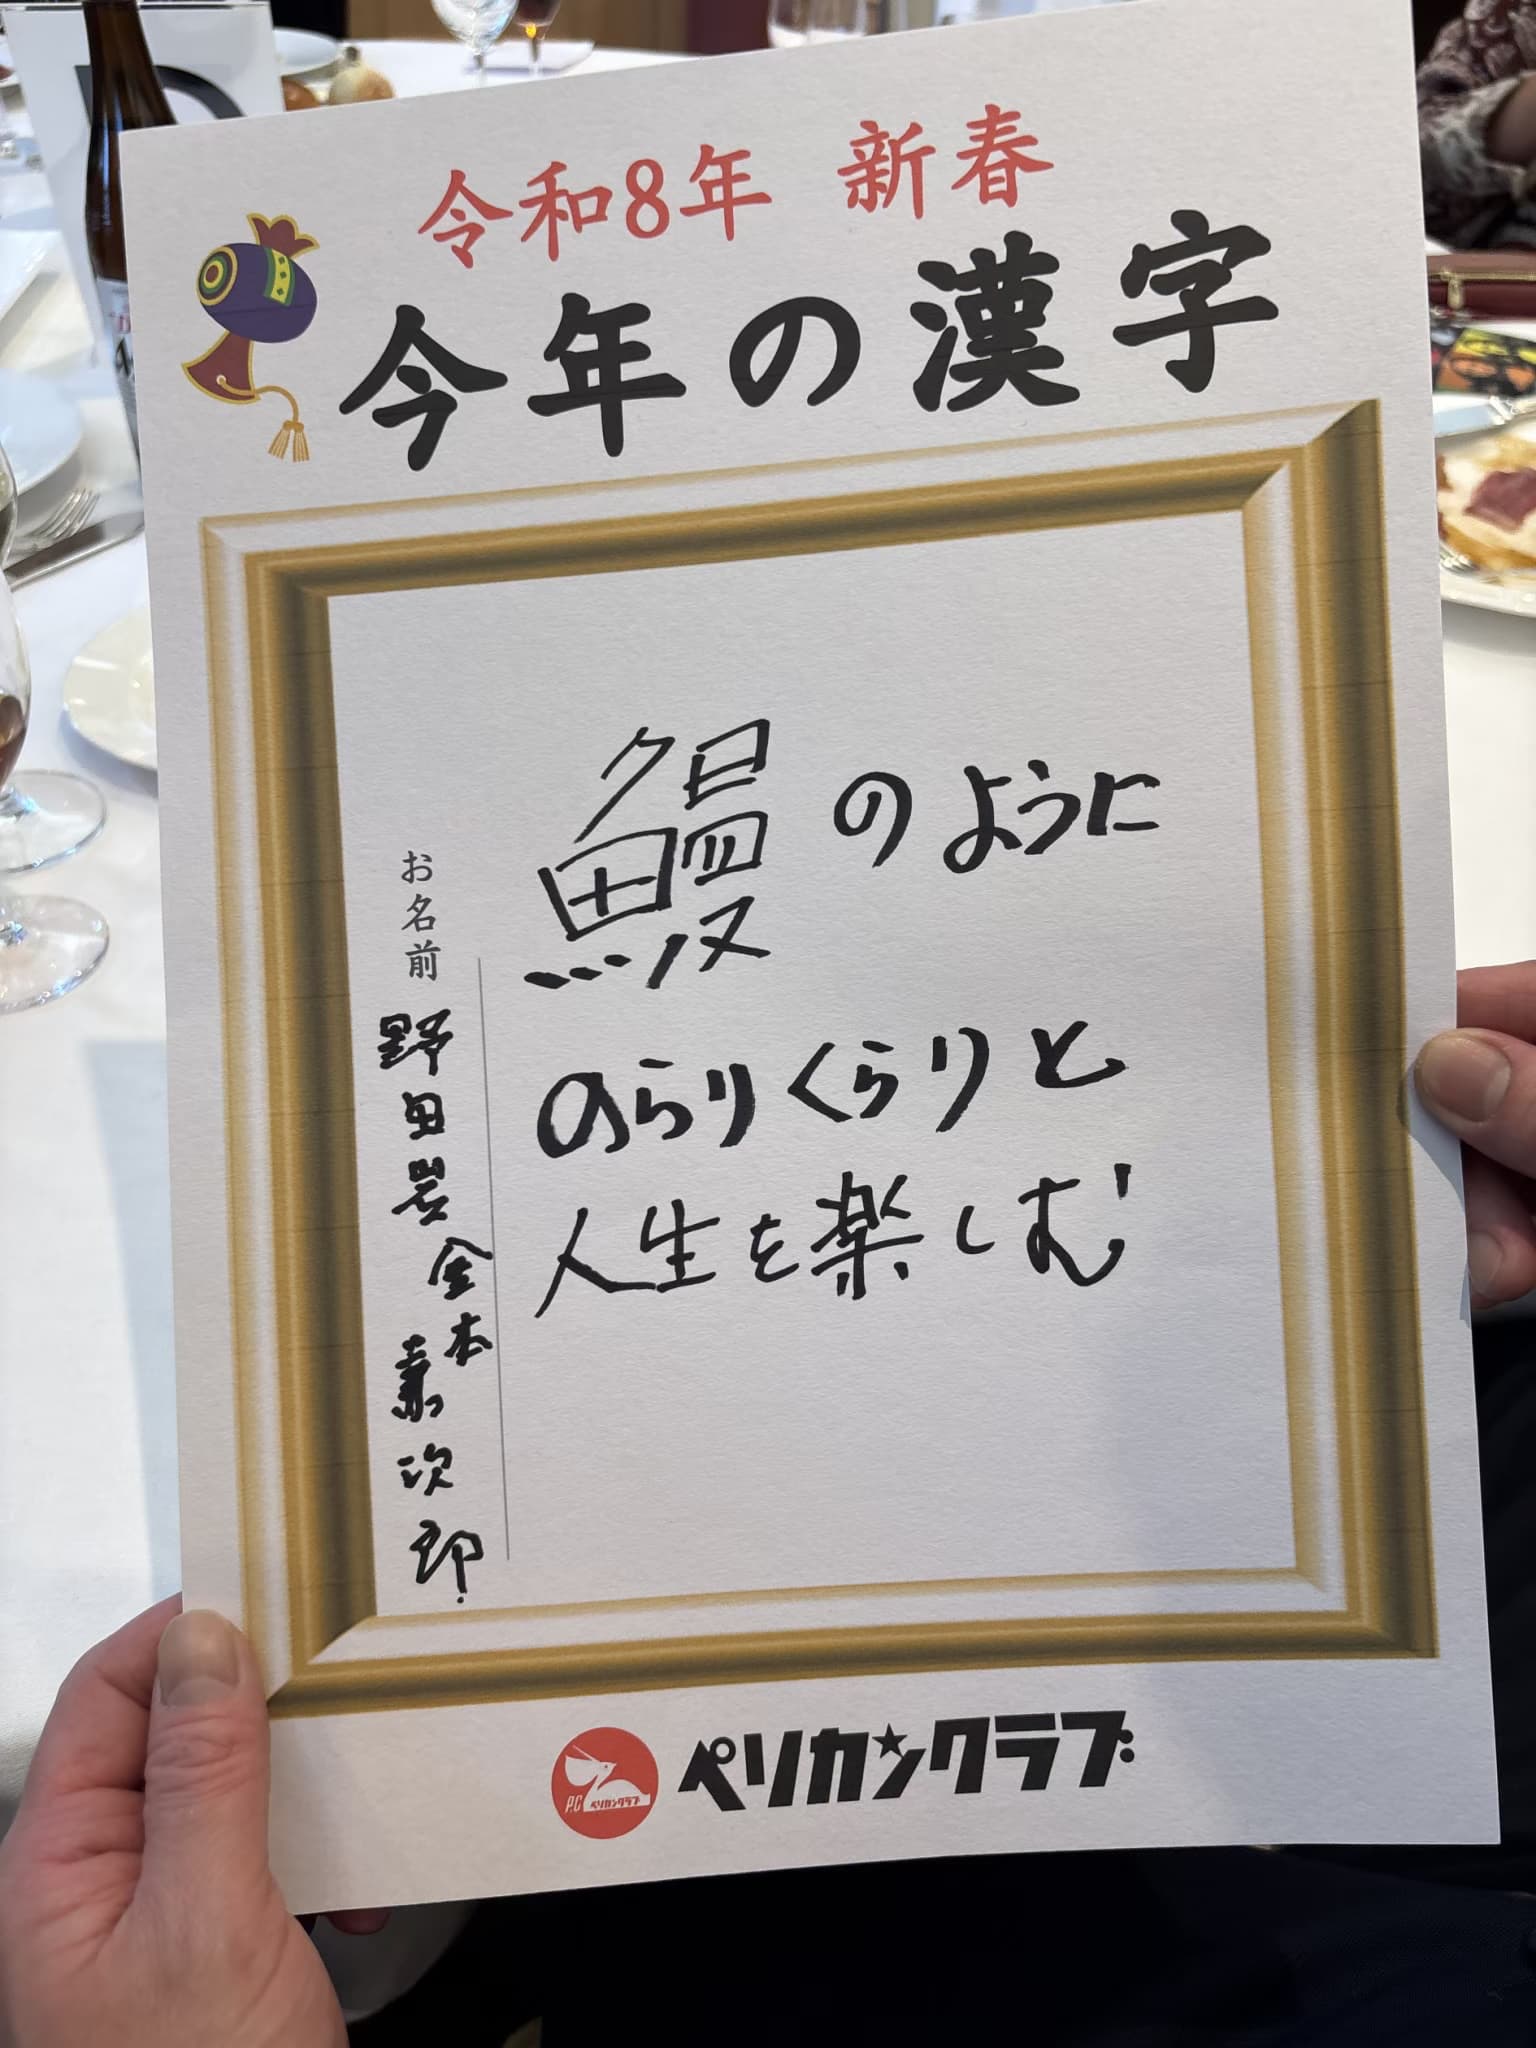 令和8年 新春
今年の漢字
鰻のように
のらりくらりと
人生を楽しむ
お名前
野田岩 金本兼次郎
P.C ペリカンクラブ
ペリカンクラブ